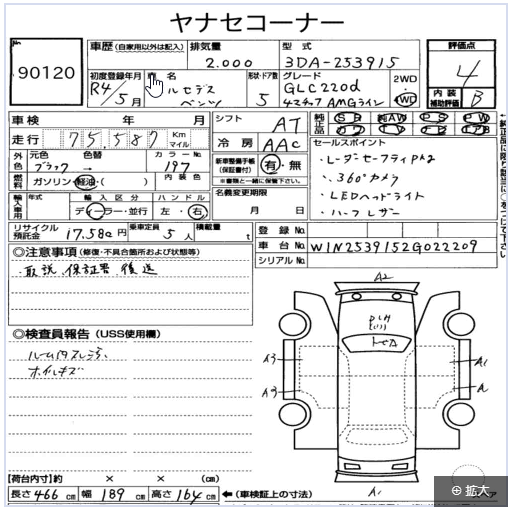 ヤナセコーナー
No.
90120
車歴 (自家用以外は記入) 排気量 型式
2.000 3DA-253915
初度登録年月 車名 形状・ドア数 グレード 2WD
R4/5月 メルセデス ベンツ 5 GLC220d 4WD
4マチック AMGライン
評価点
4
内装補助評価 B
車検 年 月 シフト AT
走行 75,587 Km マイル
冷房 AAC
外色 元色 色替 カラーNo.
ブラック → 197
燃料 ガソリン・軽油・( ) 内装色
輸入車用 年式 輸入区分 ハンドル
ディーラー・並行 左・右
リサイクル預託金 17.580円 乗車定員 5人 積載量 t
新車整備手帳 (保証書付) 有・無
※書類と一緒に保管下さい。
名義変更期限
月 日
純正品 SR 純AW PS PW
セールスポイント
・レーダーセーフティPKG
・360°カメラ
・LEDヘッドライト
・ハーフレザー
登録No.
車台No. W1N2539152G022209
シリアルNo.
◎注意事項 (修復・不具合箇所および状態等)
取説 保証書 後送
◎検査員報告 (USS使用欄)
ルーム内スレ
ホイルキズ
A2
A3
A3
A1
A
A1
【荷台内寸】約 × × (cm)
長さ 466 cm 幅 189 cm 高さ 164 cm ←(車検証上の寸法)
拡大